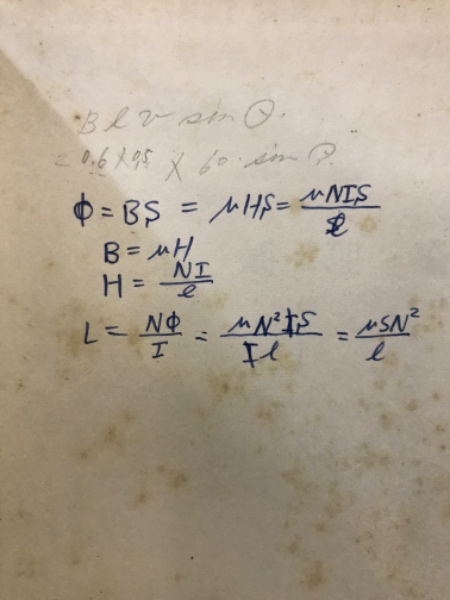 Blv sin θ.
= 0.6 × 0.5 × 60 · sin θ.
Φ = BS = μHS = μNIS/ℓ
B = μH
H = NI/ℓ
L = NΦ/I = μN²IS/Iℓ = μSN²/ℓ